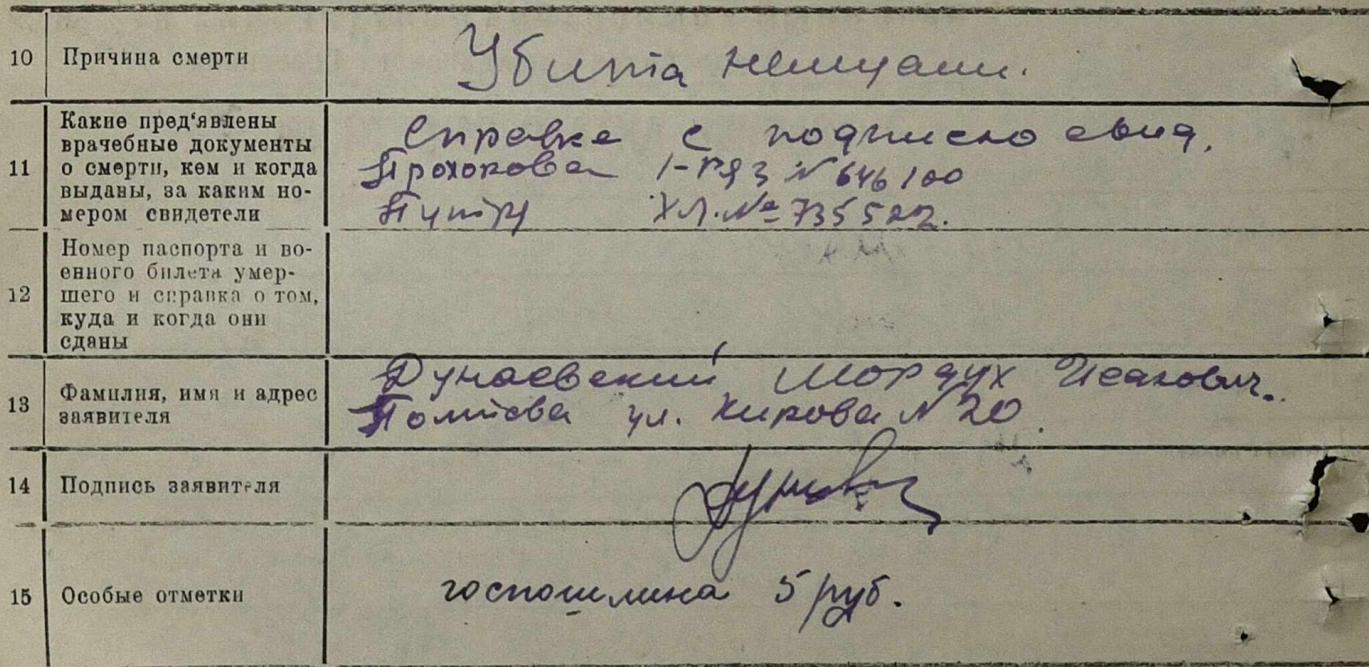 10 Причина смерти
Убита немцами.
11 Какие пред'явлены
врачебные документы
о смерти, кем и когда
выданы, за каким но-
мером свидетели
Справка с подписью свид.
Прохорова 1-РЯЗ № 646100
ХЛ. № 735522.
12 Номер паспорта и во-
енного билета умер-
шего и справка о том,
куда и когда они
сданы
13 Фамилия, имя и адрес
заявителя
Дунаевский Мордух Исакович.
Полтава ул. Кирова № 20.
14 Подпись заявителя
15 Особые отметки
госпошлина 5 руб.